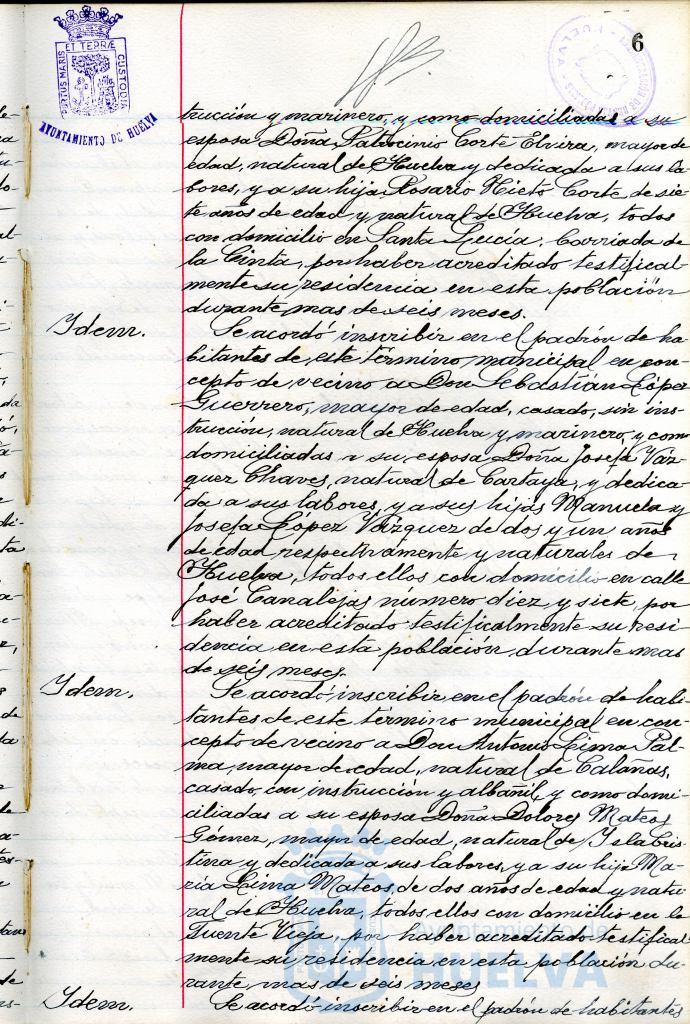 PORTUS MARIS ET TERRÆ CUSTODIA
AYUNTAMIENTO DE HUELVA
HUELVA
6
trucción y marinero, y como domiciliadas a su
esposa Doña Patrocinio Corte Elvira, mayor de
edad, natural de Huelva y dedicada a sus la-
bores, y a su hija Rosario Nieto Corte de sie-
te años de edad y natural de Huelva, todos
con domicilio en Santa Lucía, barriada de
la Cinta, por haber acreditado testifical-
mente su residencia en esta población
durante mas de seis meses.
Idem.
Se acordó inscribir en el padrón de ha-
bitantes de este término municipal en con-
cepto de vecino a Don Sebastián López
Guerrero, mayor de edad, casado, sin ins-
trucción, natural de Huelva y marinero, y como
domiciliadas a su esposa Doña Josefa Váz-
quez Chaves, natural de Cartaya, y dedica-
da a sus labores, y a sus hijas Manuela y
Josefa López Vázquez de dos y un años
de edad respectivamente y naturales de
Huelva, todos ellos con domicilio en calle
José Canalejas número diez y siete, por
haber acreditado testificalmente su resi-
dencia en esta población, durante mas
de seis meses.
Idem.
Se acordó inscribir en el padrón de habi-
tantes de este término municipal en con-
cepto de vecino a Don Antonio Lima Pal-
ma, mayor de edad, natural de Calañas,
casado, con instrucción y albañil, y como domi-
ciliadas a su esposa Doña Dolores Mateos
Gómez, mayor de edad, natural de Isla Cris-
tina y dedicada a sus labores, y a su hija Ma-
ría Lima Mateos, de dos años de edad y natu-
ral de Huelva, todos ellos con domicilio en la
Fuente Vieja, por haber acreditado testifical-
mente su residencia en esta población du-
rante mas de seis meses
Idem.
Se acordó inscribir en el padrón de habitantes
Ayuntamiento de
HUELVA